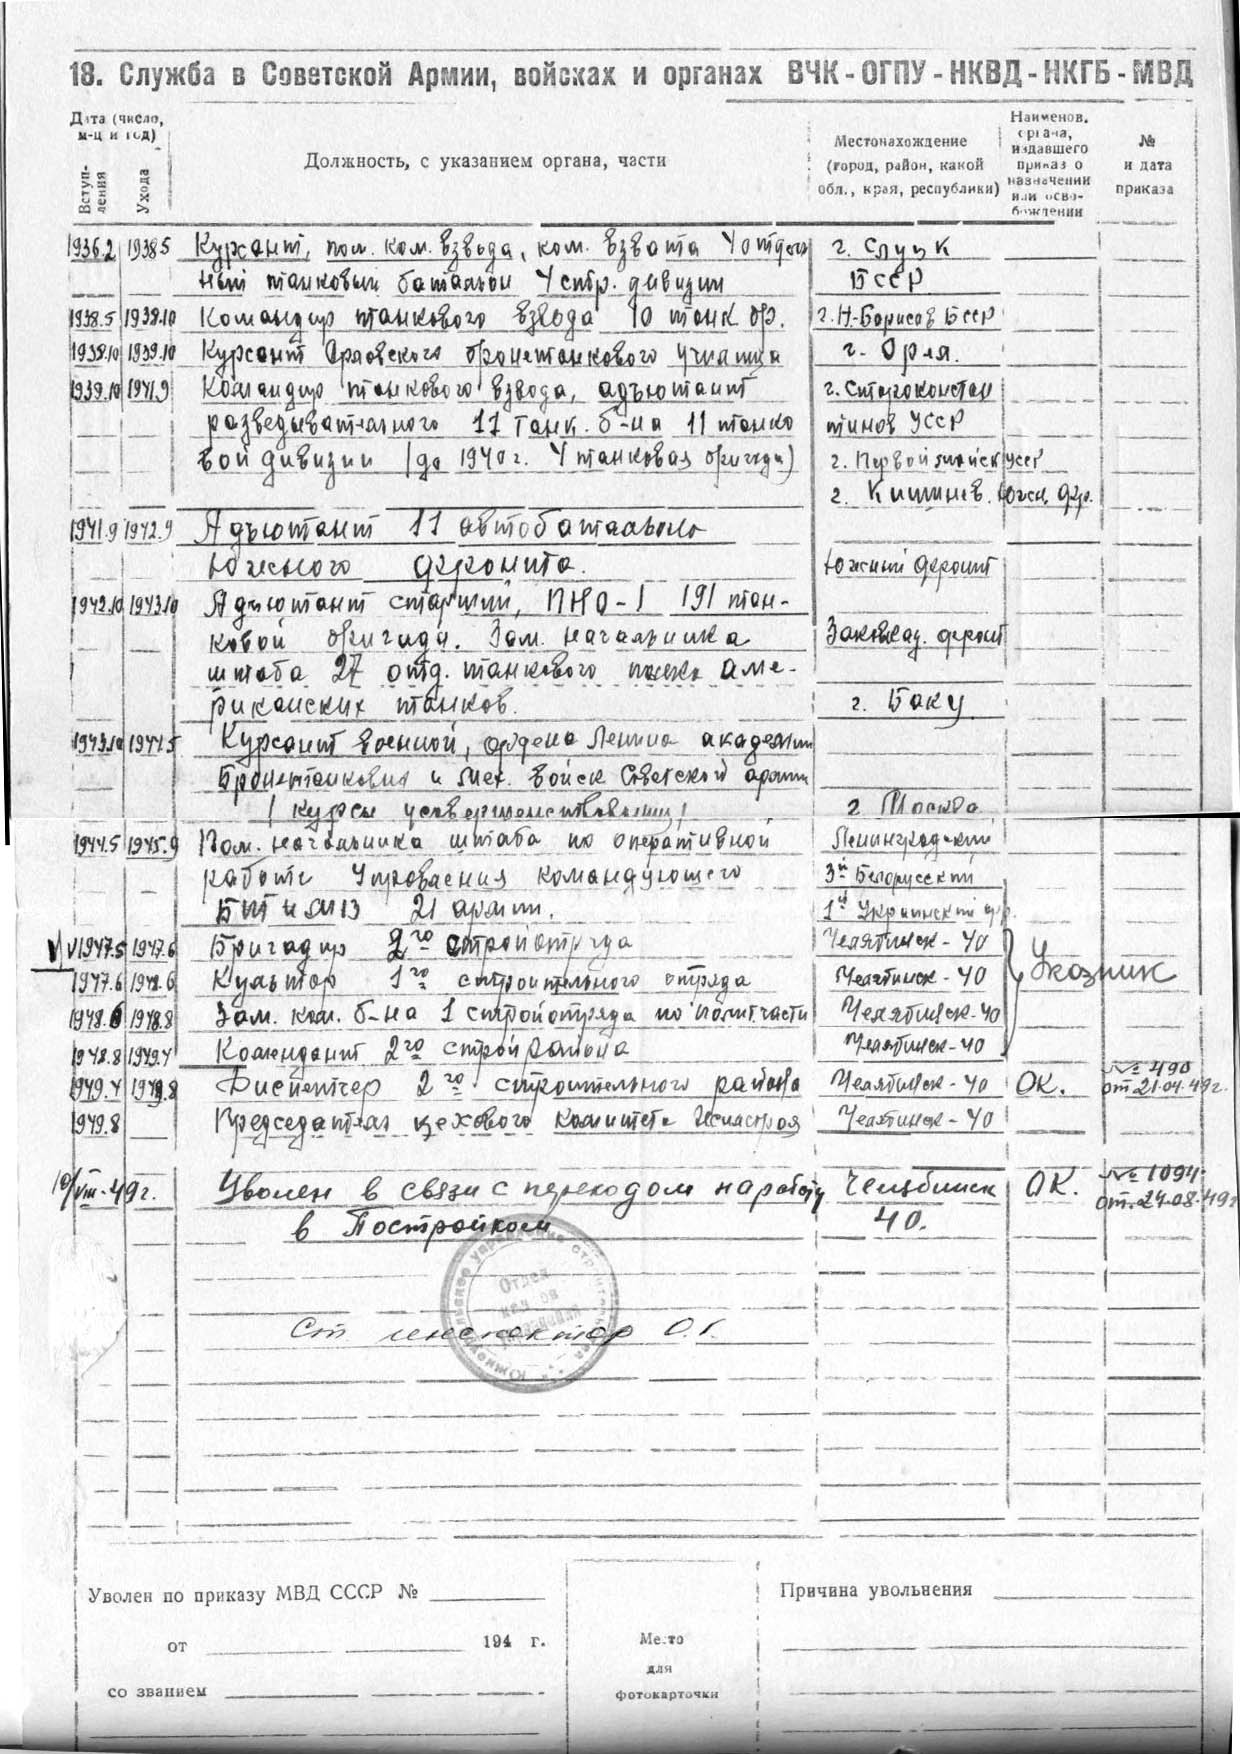 18. Служба в Советской Армии, войсках и органах ВЧК - ОГПУ - НКВД - НКГБ - МВД
Дата (число, м-ц и год)
Вступления
Ухода
Должность, с указанием органа, части
Местонахождение (город, район, какой обл., края, республики)
Наименов. органа, издавшего приказ о назначении или освобождении
№ и дата приказа
1936.2 1938.5 Курсант, пом. ком. взвода, ком. взвота 4 г. Слуцк
ный танковый батальон 4 стр. дивизии БССР
1938.5 1938.10 Командир танкового взвода 10 танк бр. г. Н-Борисов БССР
1938.10 1939.10 Курсант Орловского бронетанкового училища г. Орля.
1939.10 1941.9 Командир танкового взвода, адъютант г. Староконстан
разведывательного 11 танк. б-на 11 танко тинов УССР
вой дивизии (до 1940 г. 4 танковая бригада) г. Первомайск УССР
г. Кишинев. Южн. фр.
1941.9 1942.9 Адъютант 11 автобатальона
Южного фронта. Южный фронт
1942.10 1943.10 Адъютант старший, ПНО-1 191 тан-
ковой бригады. Зам. начальника Закавказ. фронт
штаба 27 отд. танкового полка аме-
риканских танков. г. Баку
1943.10 1944.5 Курсант военной, ордена Ленина академии
Бронетанковых и мех. войск Советской армии
(курсы усовершенствования) г. Москва
1944.5 1945.9 Пом. начальника штаба по оперативной Ленинградский
работе Управления командующего 3й Белорусский
БТ и МВ 21 армии. 1й Украинский фр.
1947.5 1947.6 Бригадир 2го стройотряда Челябинск - 40
1947.6 1948.6 Культорг 1го строительного отряда Челябинск - 40 Указник
1948.6 1948.8 Зам. ком. б-на 1 стройотряда по политчасти Челябинск-40
1948.8 1949.4 Комендант 2го стройрайона Челябинск-40
1949.4 1949.8 Диспетчер 2го строительного района Челябинск - 40 ОК. № 490 от 21.04.49г.
1949.8 Председатель цехового комитета Челябинск - 40
10/VIII-49г. Уволен в связи с переходом на работу Челябинск ОК. № 1094 от 24.08.49г
в Постройком 40.
Отдел кадров
Ст инспектор О.К.
Уволен по приказу МВД СССР №
Причина увольнения
от 194 г.
Место для фотокарточки
со званием